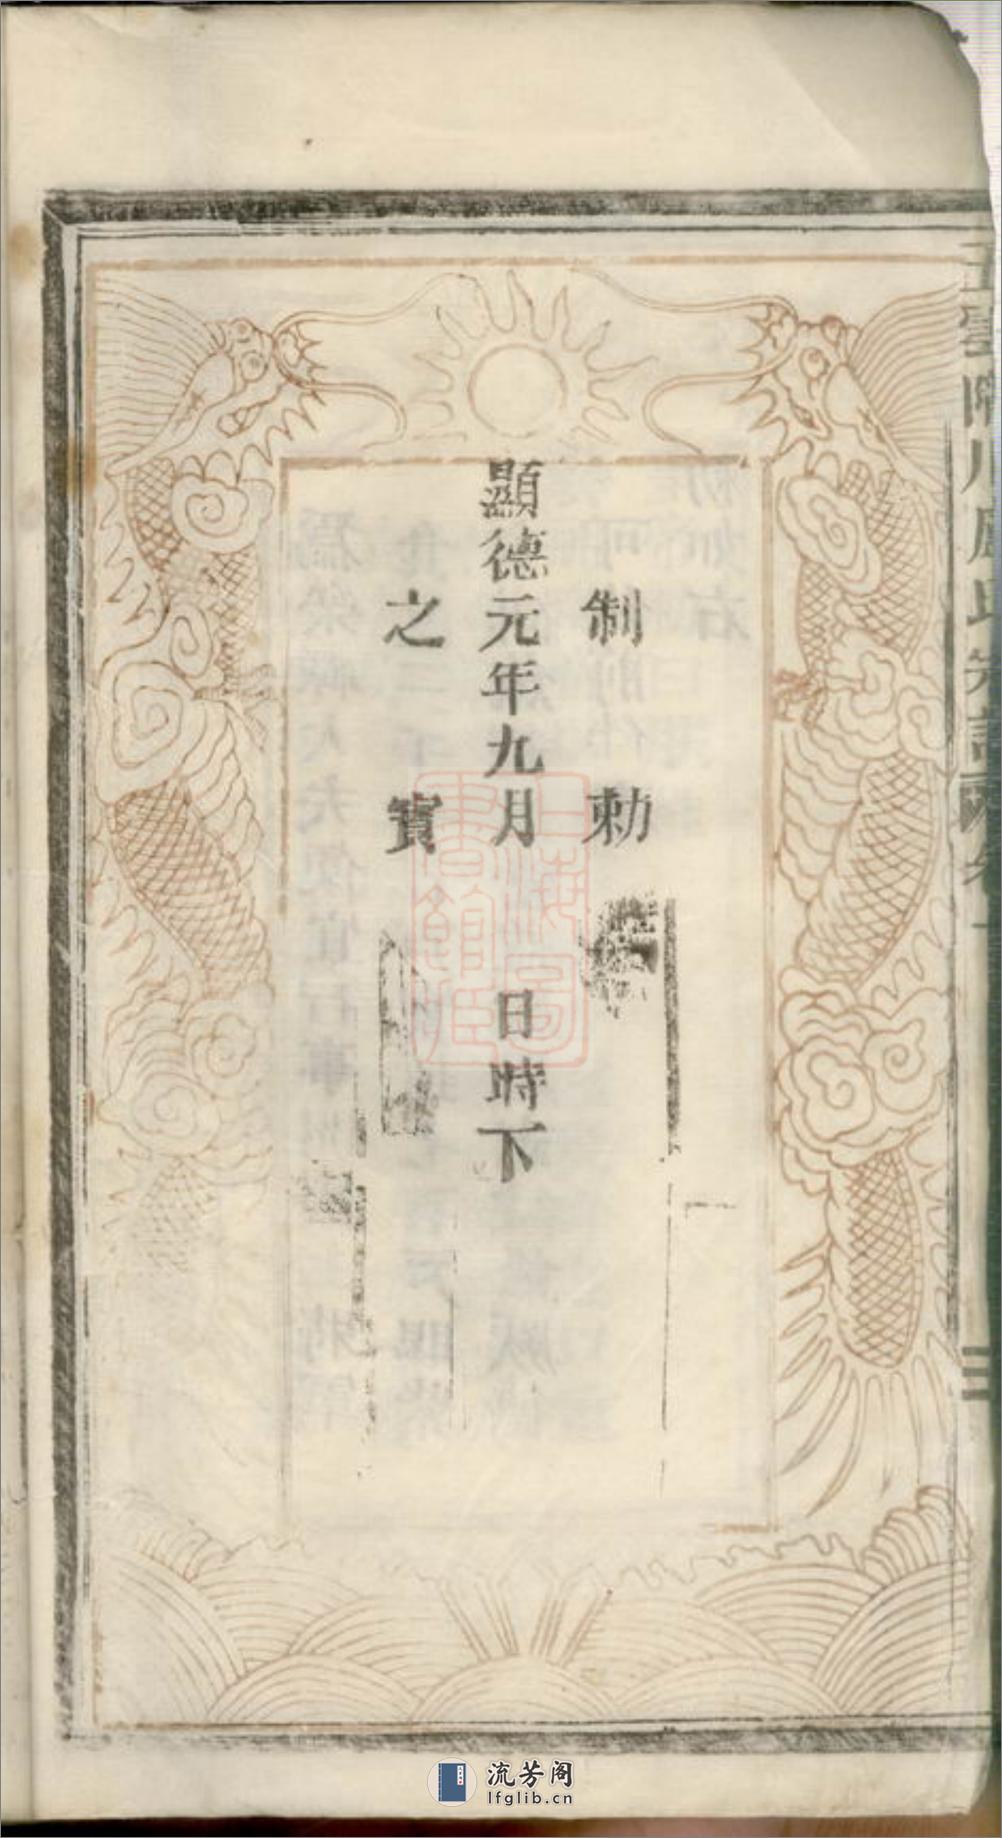 制勅
顯德元年九月 日時下
之寳
上海圖書館藏
流芳阁
lfglib.cn